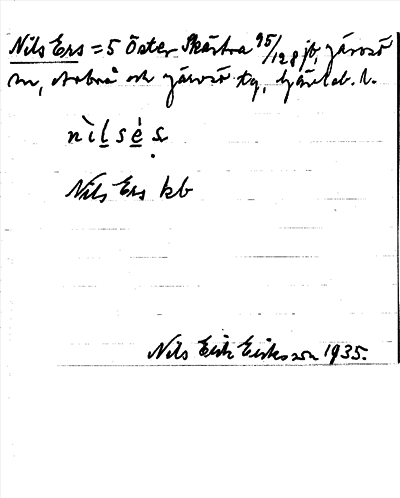 Nils Ers = 5 Öster Skästra 95/128 jb, Järvsö
sn, Arbrå och Järvsö tg, Gävleb. l.
nìlsès
Nils Ers kb
Nils Erik Eriksson 1935.